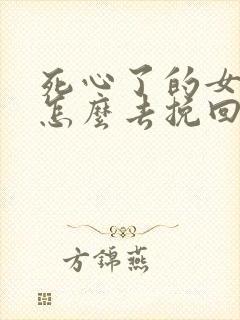 死心了的女
怎麼去挽回
方錦燕